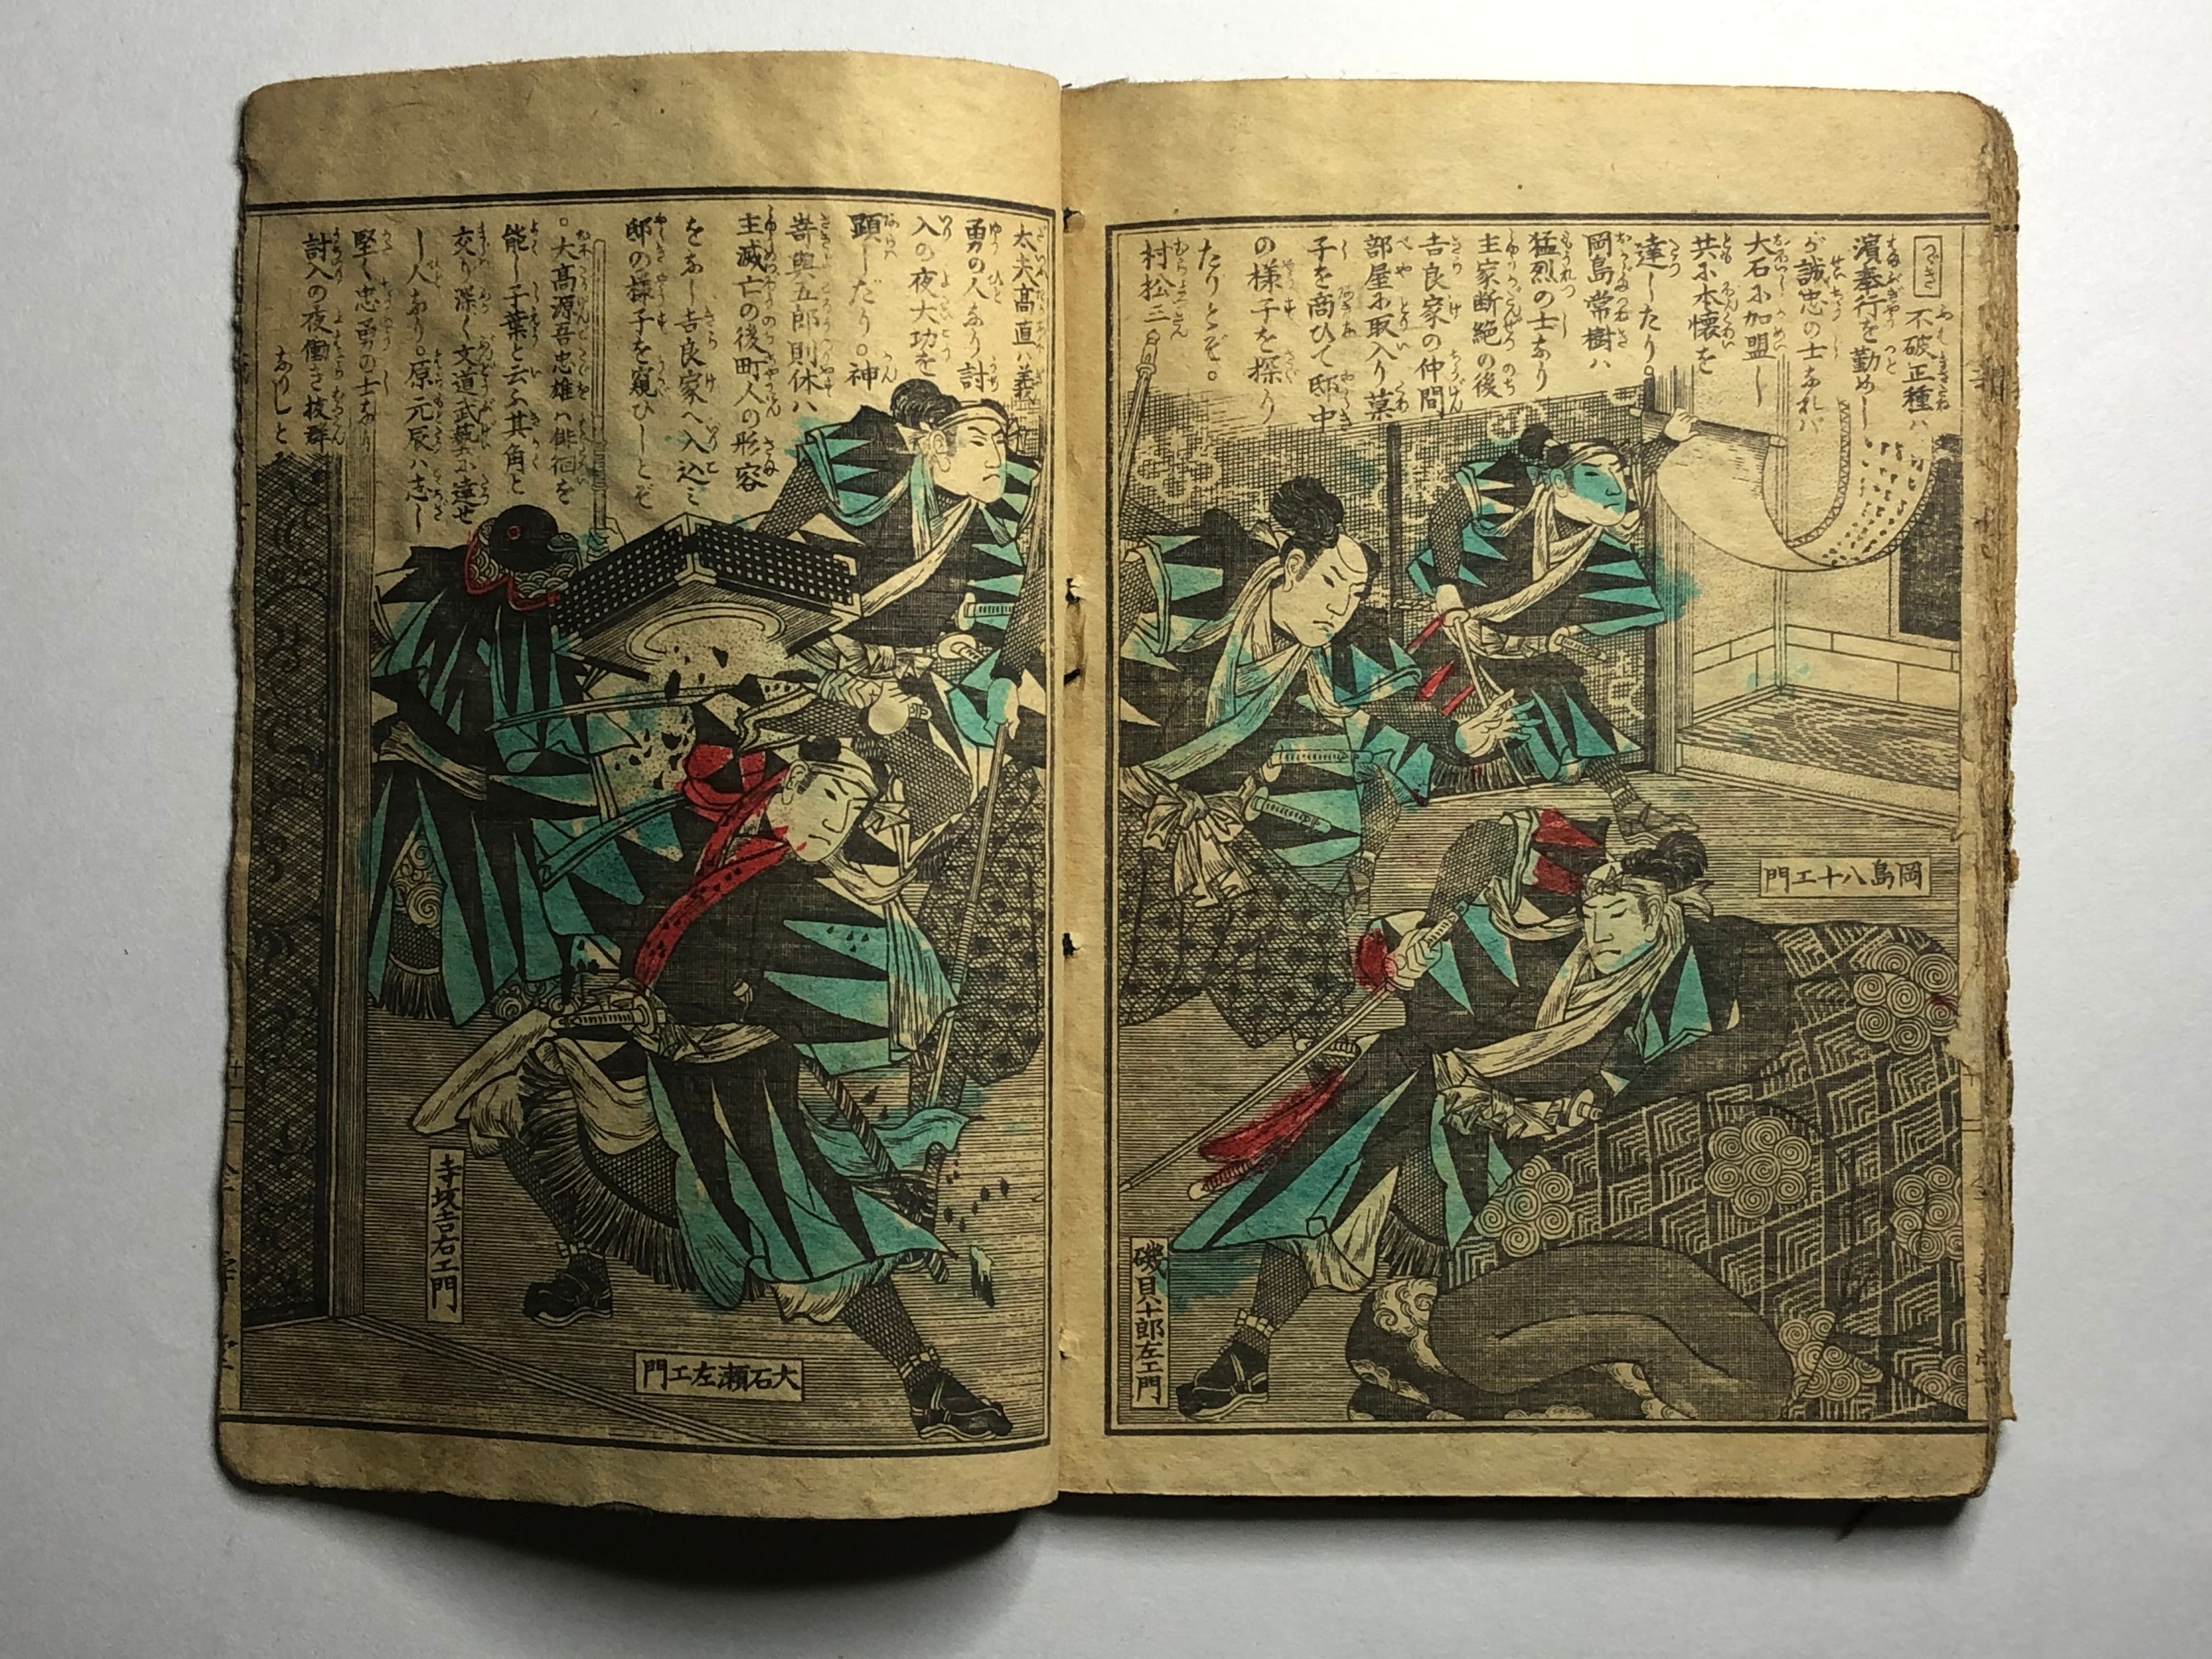 つゞき
不破正種ハ
濱奉行を勤めし
が誠忠の士なれバ
大石に加盟し
共に本懐を
達したり。
岡島常樹ハ
猛烈の士なり
主家断絶の後
吉良家の仲間
部屋に取入り菓
子を商ひて邸中
の様子を探り
たりとぞ。
村松三
岡島八十エ門
磯貝十郎左エ門
太夫高直ハ義
勇の人なり討
入の夜大功を
顕しだり。神
嵜與五郎則休ハ
主滅亡の後町人の形容
をなし吉良家へ入込ミ
邸の様子を窺ひしとぞ
。大高源吾忠雄ハ俳徊を
能し子葉と云ふ其角と
交り深く文道武藝に達せ
し人なり。原元辰ハ志し
堅く忠勇の士なり
討入の夜働き抜群
なりしとぞ
寺坂吉右エ門
大石瀬左エ門